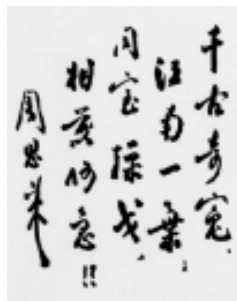 千古奇冤，
江南一葉；
同室操戈，
相煎何急！！
周恩来